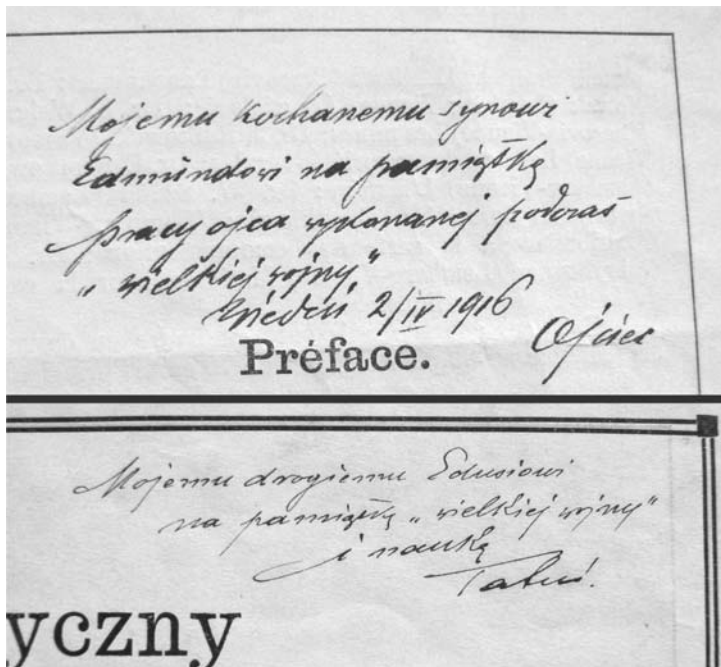 Mojemu kochanemu synowi
Edmundowi na pamiątkę
pracy ojca wykonanej podczas
„wielkiej wojny”
Wiedeń 2/IV 1916
Ojciec
Préface.
Mojemu drogiemu Edusiowi
na pamiątkę „wielkiej wojny”
i naukę
Tatuś.
yczny